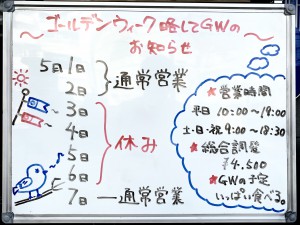 ～ゴールデンウィーク略してGWの
お知らせ～
5月1日
2日
通常営業
3日
4日
5日
6日
休み
7日 ― 通常営業
★営業時間
平日 10:00～19:00
土・日・祝 9:00～18:30
★総合調整
¥4,500
★GWの予定
いっぱい食べる。